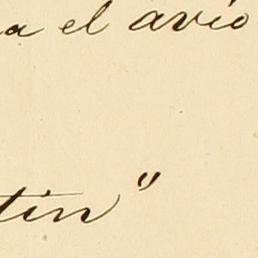 a el avío
tin"